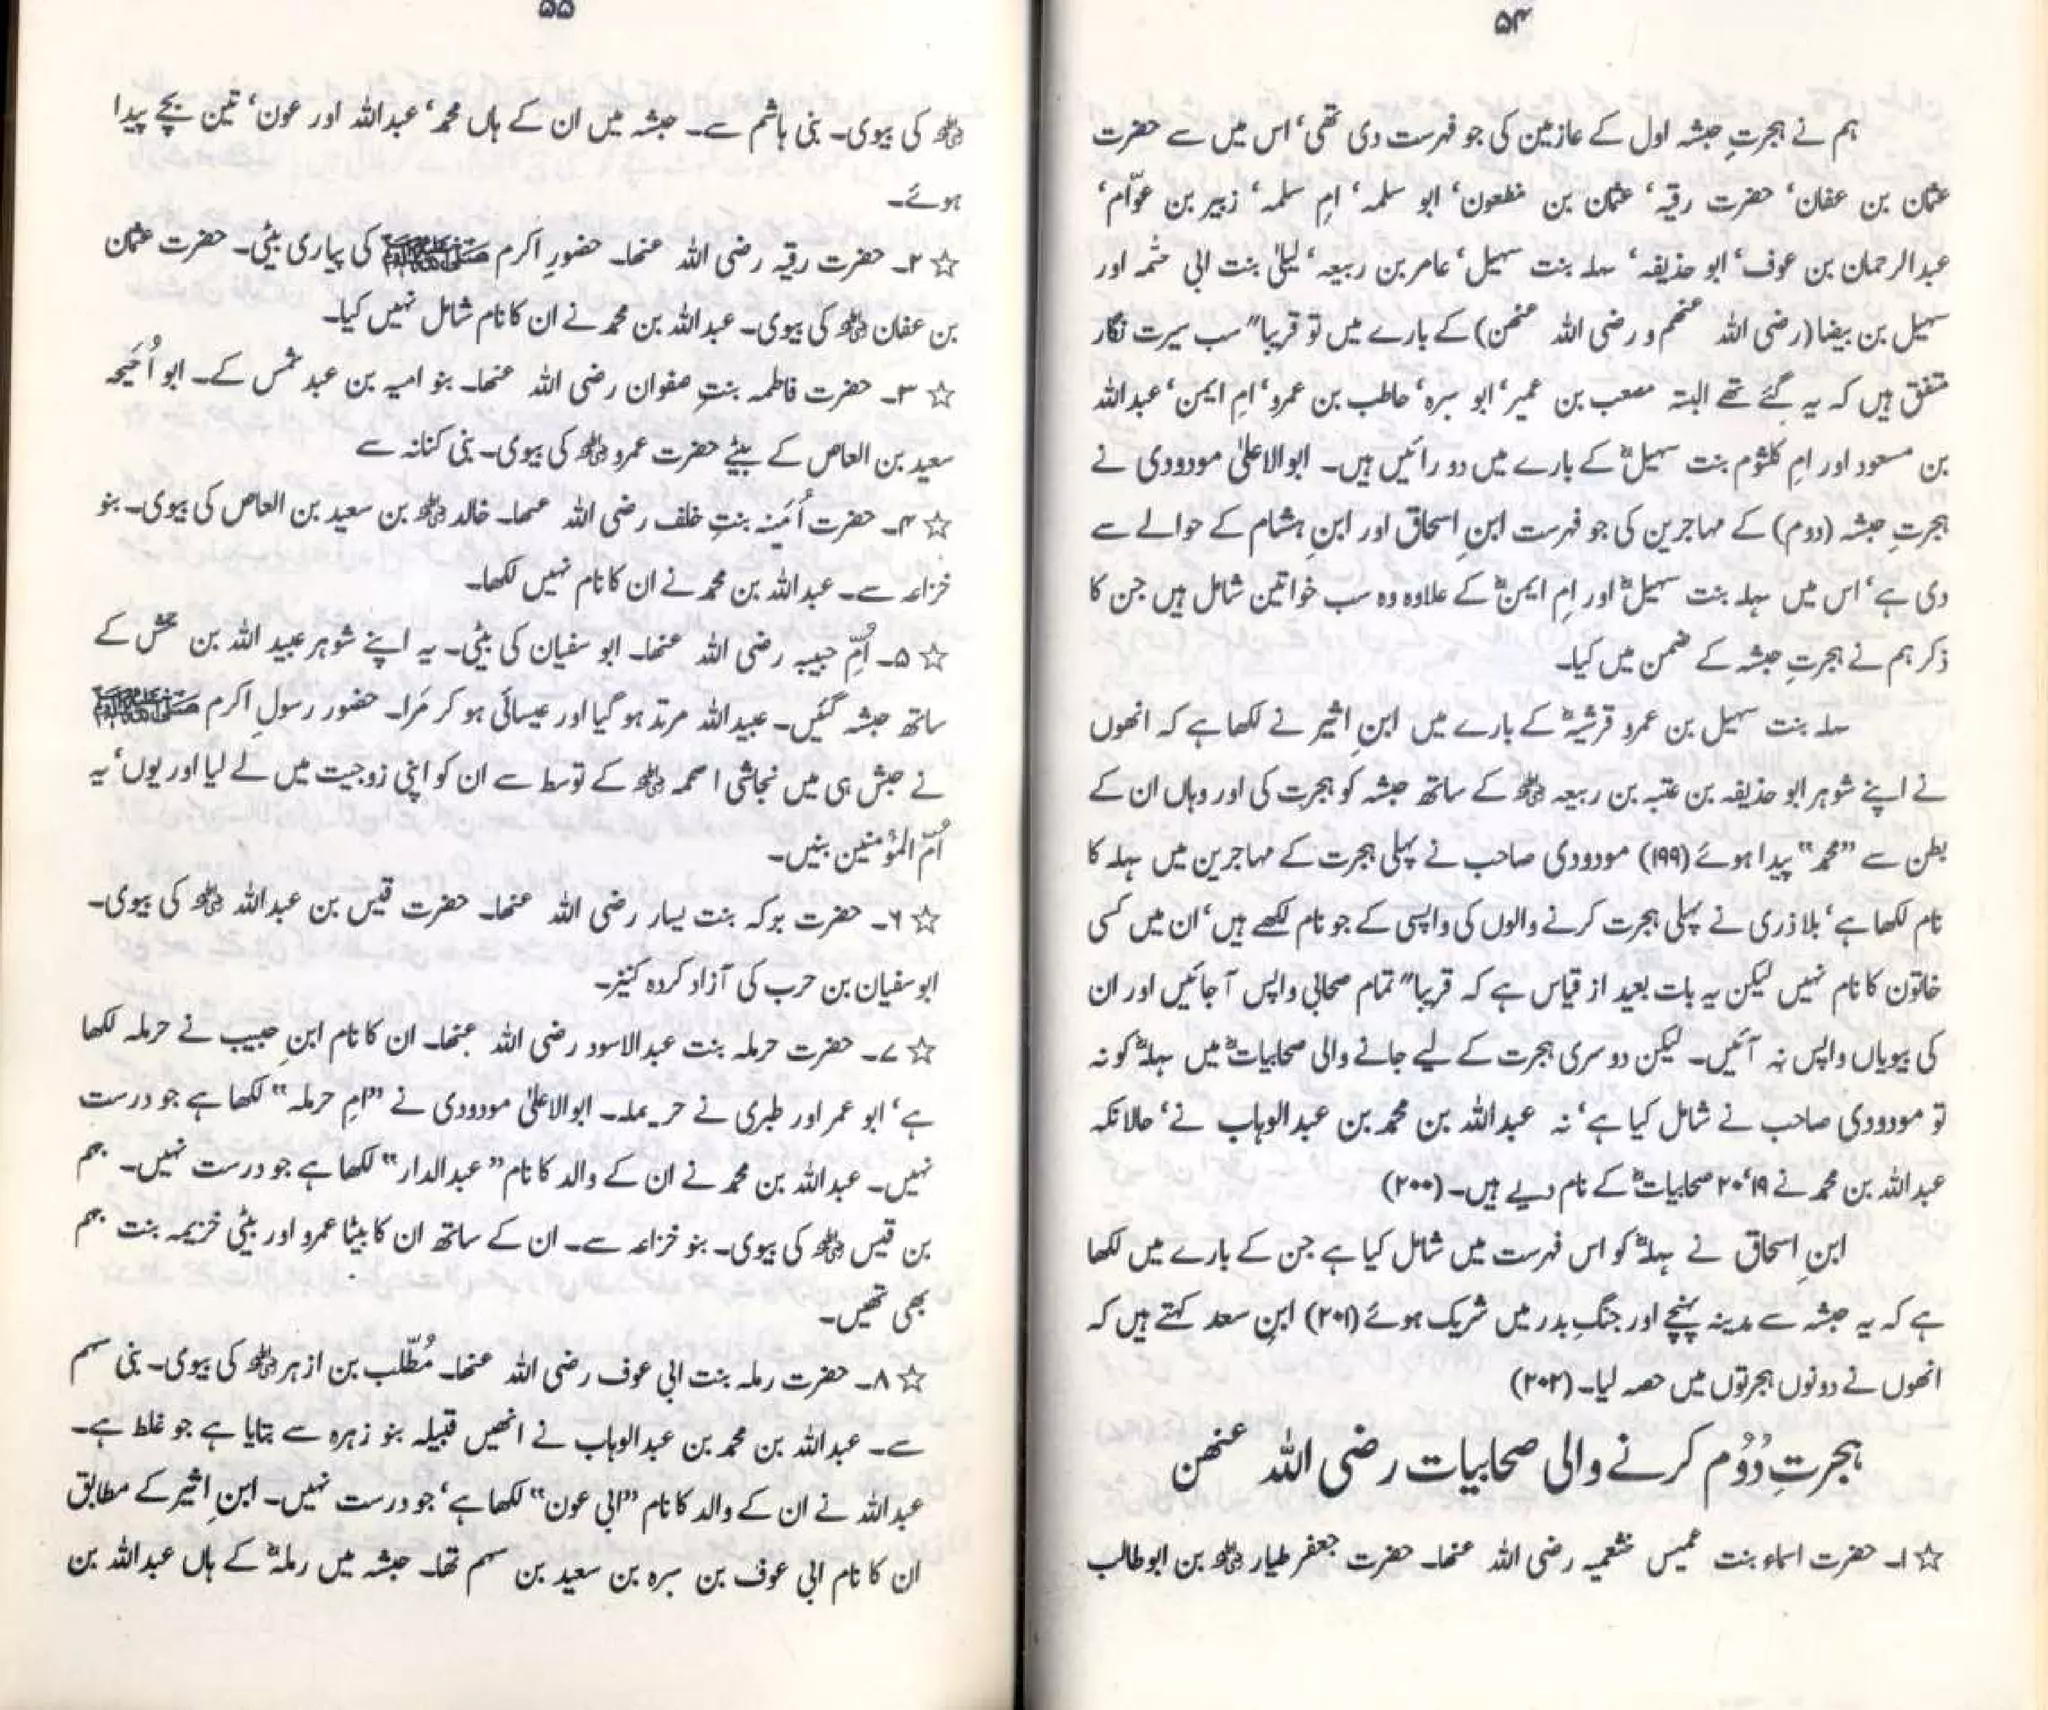 ۵۴
ہم نے ہجرتِ حبشہ اول کے عازمین کی جو فہرست دی تھی‘ اس میں سے حضرت
عثمان بن عفان‘ حضرت رقیہ‘ عثمان بن مظعون‘ ابو سلمہ‘ امِ سلمہ‘ زبیر بن عوّام‘
عبدالرحمان بن عوف‘ ابو حذیفہ‘ سہلہ بنت سہیل‘ عامر بن ربیعہ‘ لیلیٰ بنت ابی حثمہ اور
سہیل بن بیضا (رضی اللہ عنھم و رضی اللہ عنھن) کے بارے میں تو قریبا" سب سیرت نگار
متفق ہیں کہ یہ گئے تھے البتہ مصعب بن عمیر‘ ابو سبرہ‘ حاطب بن عمرو‘ امِ ایمن‘ عبداللہ
بن مسعود اور امِ کلثوم بنت سہیلؓ کے بارے میں دو رائیں ہیں۔ ابوالاعلیٰ مودودی نے
ہجرتِ حبشہ (دوم) کے مہاجرین کی جو فہرست ابنِ اسحاق اور ابنِ ہشام کے حوالے سے
دی ہے‘ اس میں سہلہ بنت سہیلؓ اور امِ ایمنؓ کے علاوہ وہ سب خواتین شامل ہیں جن کا
ذکر ہم نے ہجرتِ حبشہ کے ضمن میں کیا۔
سہلہ بنت سہیل بن عمرو قرشیہؓ کے بارے میں ابنِ اثیر نے لکھا ہے کہ انھوں
نے اپنے شوہر ابو حذیفہ بن عتبہ بن ربیعہ ؓ کے ساتھ حبشہ کو ہجرت کی اور وہاں ان کے
بطن سے "محمد" پیدا ہوئے (۱۹۹) مودودی صاحب نے پہلی ہجرت کے مہاجرین میں سہلہ کا
نام لکھا ہے‘ بلاذری نے پہلی ہجرت کرنے والوں کی واپسی کے جو نام لکھے ہیں‘ ان میں کسی
خاتون کا نام نہیں لیکن یہ بات بعید از قیاس ہے کہ قریبا" تمام صحابی واپس آ جائیں اور ان
کی بیویاں واپس نہ آئیں۔ لیکن دوسری ہجرت کے لیے جانے والی صحابیاتؓ میں سہلہؓ کو نہ
تو مودودی صاحب نے شامل کیا ہے‘ نہ عبداللہ بن محمد بن عبدالوہاب نے‘ حالانکہ
عبداللہ بن محمد نے ۱۹‘ ۲۰ صحابیاتؓ کے نام دیے ہیں۔ (۲۰۰)
ابنِ اسحاق نے سہلہؓ کو اس فہرست میں شامل کیا ہے جن کے بارے میں لکھا
ہے کہ یہ حبشہ سے مدینہ پہنچے اور جنگِ بدر میں شریک ہوئے (۲۰۱) ابنِ سعد کہتے ہیں کہ
انھوں نے دونوں ہجرتوں میں حصہ لیا۔ (۲۰۲)
ہجرتِ دُوُم کرنے والی صحابیات رضی اللہ عنھن
☆ ۱۔ حضرت اسماء بنت عمیس خثعمیہ رضی اللہ عنھا۔ حضرت جعفر طیار ؓ بن ابوطالب
۵۵
ؓ کی بیوی۔ بنی ہاشم سے۔ حبشہ میں ان کے ہاں محمد‘ عبداللہ اور عون‘ تین بچے پیدا
ہوئے۔
☆ ۲۔ حضرت رقیہ رضی اللہ عنھا۔ حضورِ اکرم ﷺ کی پیاری بیٹی۔ حضرت عثمان
بن عفان ؓ کی بیوی۔ عبداللہ بن محمد نے ان کا نام شامل نہیں کیا۔
☆ ۳۔ حضرت فاطمہ بنتِ صفوان رضی اللہ عنھا۔ بنو امیہ بن عبد شمس کے۔ ابو اُحَیحہ
سعید بن العاص کے بیٹے حضرت عمرو ؓ کی بیوی۔ بنی کنانہ سے
☆ ۴۔ حضرت اُمَینہ بنتِ خلف رضی اللہ عنھا۔ خالد ؓ بن سعید بن العاص کی بیوی۔ بنو
خزاعہ سے۔ عبداللہ بن محمد نے ان کا نام نہیں لکھا۔
☆ ۵۔ اُمِّ حبیبہ رضی اللہ عنھا۔ ابو سفیان کی بیٹی۔ یہ اپنے شوہر عبید اللہ بن جحش کے
ساتھ حبشہ گئیں۔ عبیداللہ مرتد ہو گیا اور عیسائی ہو کر مَرا۔ حضور رسولِ اکرم ﷺ
نے حبش ہی میں نجاشی اصحمہ ؓ کے توسط سے ان کو اپنی زوجیت میں لے لیا اور یوں‘ یہ
اُمّ المؤمنین بنیں۔
☆ ۶۔ حضرت برکہ بنت یسار رضی اللہ عنھا۔ حضرت قیس بن عبداللہ ؓ کی بیوی۔
ابو سفیان بن حرب کی آزاد کردہ کنیز۔
☆ ۷۔ حضرت حرملہ بنت عبدالاسود رضی اللہ عنھا۔ ان کا نام ابنِ حبیب نے حرملہ لکھا
ہے‘ ابو عمر اور طبری نے حریملہ۔ ابوالاعلیٰ مودودی نے "امِ حرملہ" لکھا ہے جو درست
نہیں۔ عبداللہ بن محمد نے ان کے والد کا نام "عبدالدار" لکھا ہے جو درست نہیں۔ جہم
بن قیس ؓ کی بیوی۔ بنو خزاعہ سے۔ ان کے ساتھ ان کا بیٹا عمرو اور بیٹی خزیمہ بنت جہم
بھی تھیں۔
☆ ۸۔ حضرت رملہ بنت ابی عوف رضی اللہ عنھا۔ مُطّلب بن ازہر ؓ کی بیوی۔ بنی سہم
سے۔ عبداللہ بن محمد بن عبدالوہاب نے انھیں قبیلہ بنو زہرہ سے بتایا ہے جو غلط ہے۔
عبداللہ نے ان کے والد کا نام "ابی عون" لکھا ہے‘ جو درست نہیں۔ ابنِ اثیر کے مطابق
ان کا نام ابی عوف بن سبرہ بن سعید بن سہم تھا۔ حبشہ میں رملہؓ کے ہاں عبداللہ بن